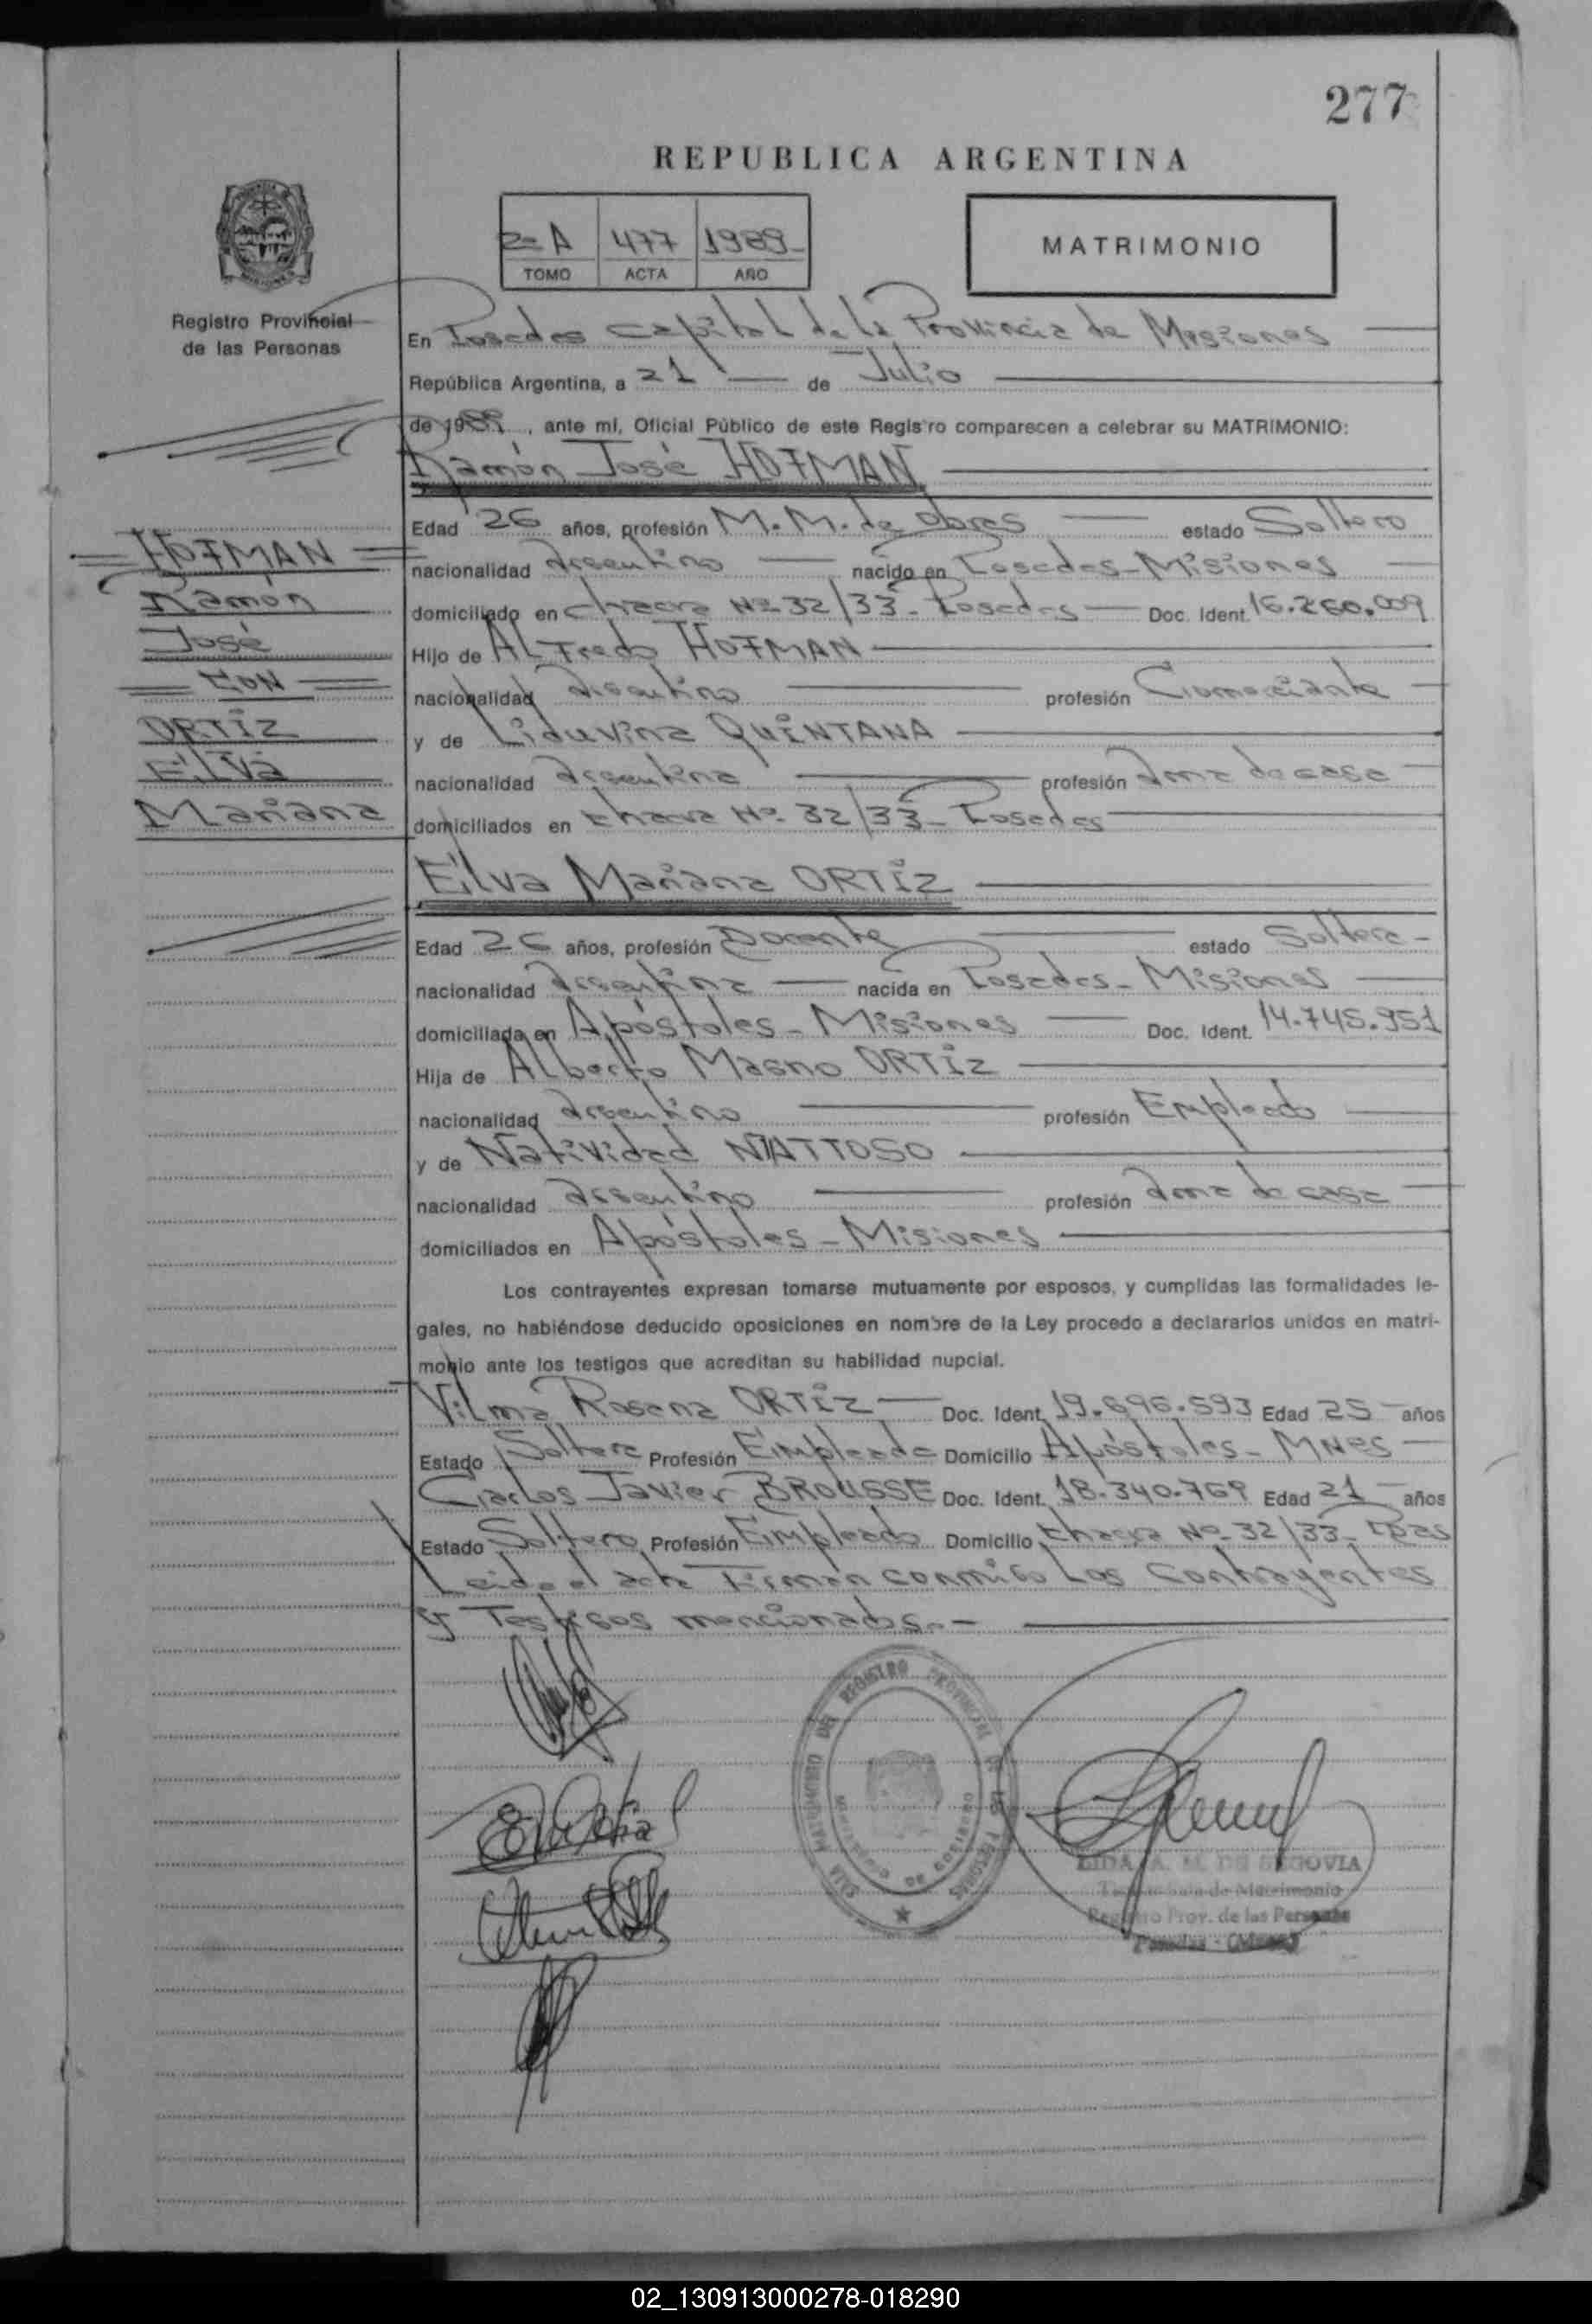 277
REPUBLICA ARGENTINA
2º A 477 1989
TOMO ACTA AÑO
MATRIMONIO
Registro Provincial
de las Personas
En Posadas capital de la Provincia de Misiones
República Argentina, a 21 de Julio
de 1989, ante mí, Oficial Público de este Registro comparecen a celebrar su MATRIMONIO:
Ramón José HOFMAN
Edad 26 años, profesión M.M. de Obras estado Soltero
nacionalidad Argentino nacido en Posadas - Misiones
domiciliado en chacra Nº 32/33 - Posadas Doc. Ident. 16.260.009
Hijo de Alfredo HOFMAN
nacionalidad Argentino profesión Comerciante
y de Liduvina QUINTANA
nacionalidad Argentina profesión Ama de casa
domiciliados en chacra Nº 32/33 - Posadas
HOFMAN
Ramón
José
CON
ORTIZ
Elva
Mariana
Elva Mariana ORTIZ
Edad 26 años, profesión Docente estado Soltera -
nacionalidad Argentina nacida en Posadas - Misiones
domiciliada en Apóstoles - Misiones Doc. Ident. 14.745.951
Hija de Alberto Magno ORTIZ
nacionalidad Argentino profesión Empleado
y de Natividad MATTOSO
nacionalidad Argentino profesión Ama de casa
domiciliados en Apóstoles - Misiones
Los contrayentes expresan tomarse mutuamente por esposos, y cumplidas las formalidades le-
gales, no habiéndose deducido oposiciones en nombre de la Ley procedo a declararlos unidos en matri-
monio ante los testigos que acreditan su habilidad nupcial.
Vilma Rosana ORTIZ Doc. Ident. 19.696.593 Edad 25 años
Estado Soltera Profesión Empleada Domicilio Apóstoles - Mnes
Carlos Javier BROUSSE Doc. Ident. 18.340.769 Edad 21 años
Estado Soltero Profesión Empleado Domicilio chacra Nº 32/33 - Pdas
Leida el acta Firman conmigo Los Contrayentes
y Testigos mencionados.-
REGISTRO PROVINCIAL DE LAS PERSONAS
MATRIMONIO
MINISTERIO DE GOBIERNO
A. M. DE SEGOVIA
de Matrimonio
Registro Prov. de las Personas
Posadas - (Mnes)
02_130913000278-018290